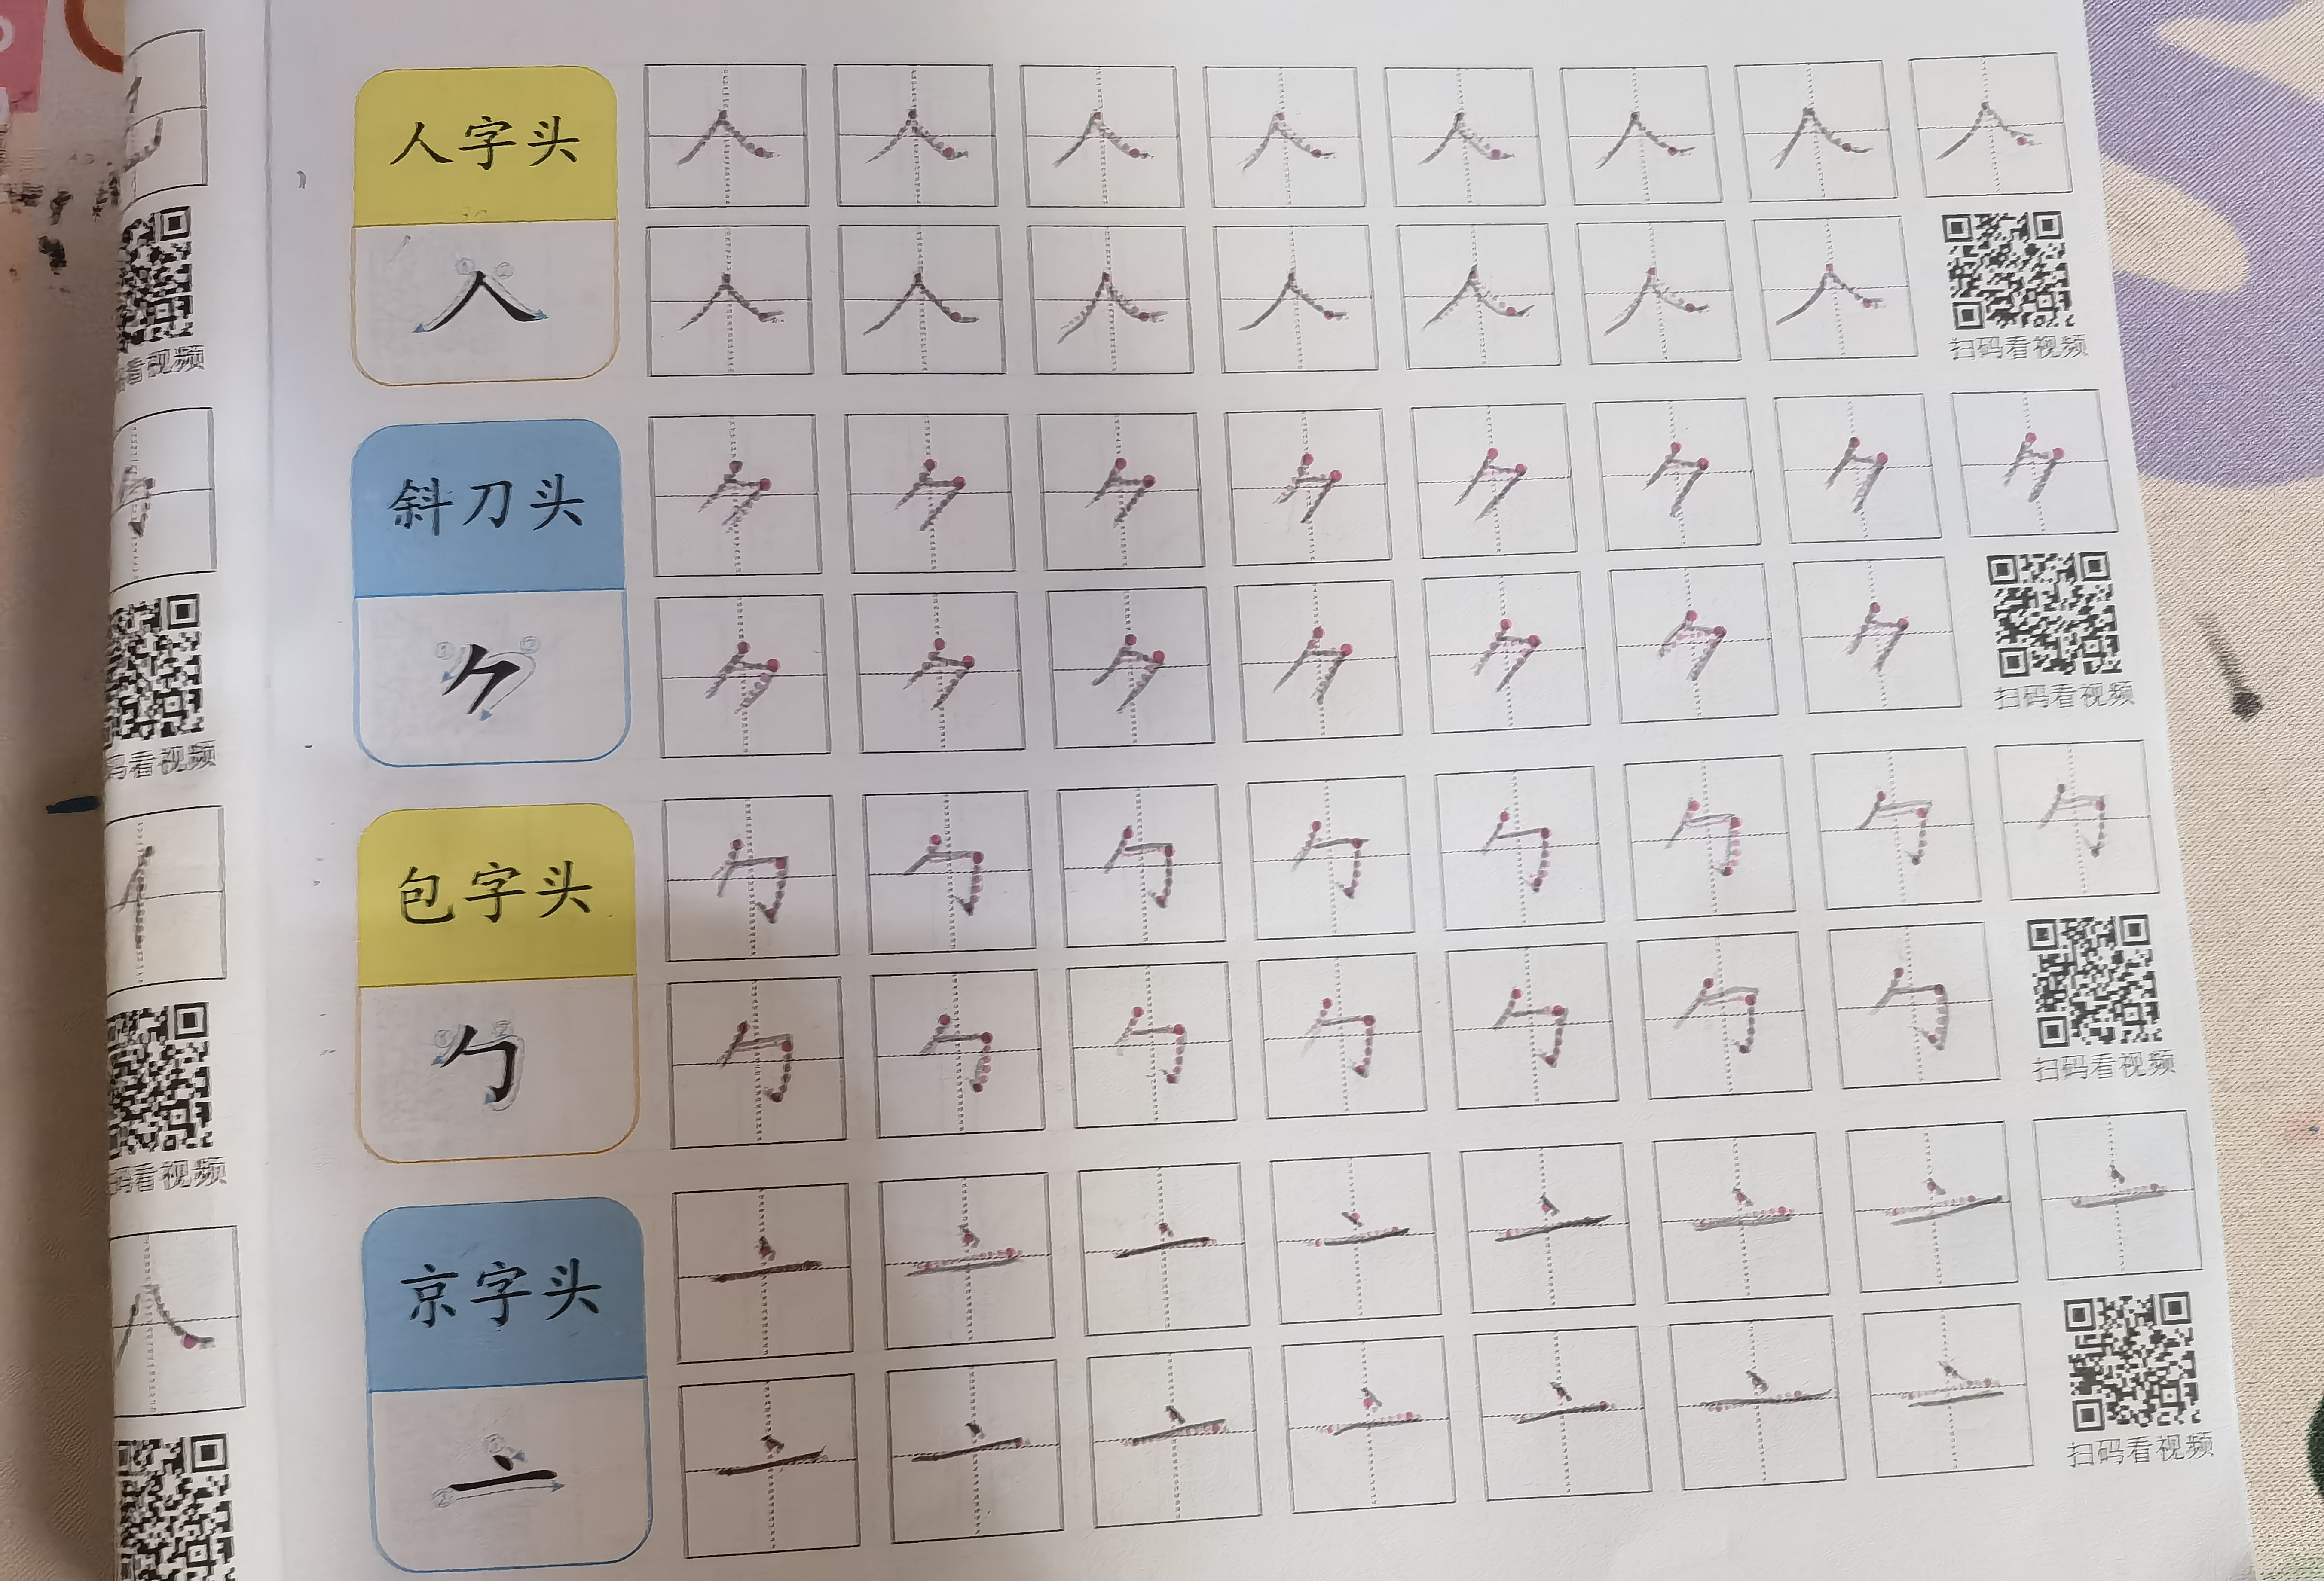 看视频
码看视频
码看视频
人字头
人
扫码看视频
斜刀头
⺈
扫码看视频
包字头
勹
扫码看视频
京字头
亠
扫码看视频